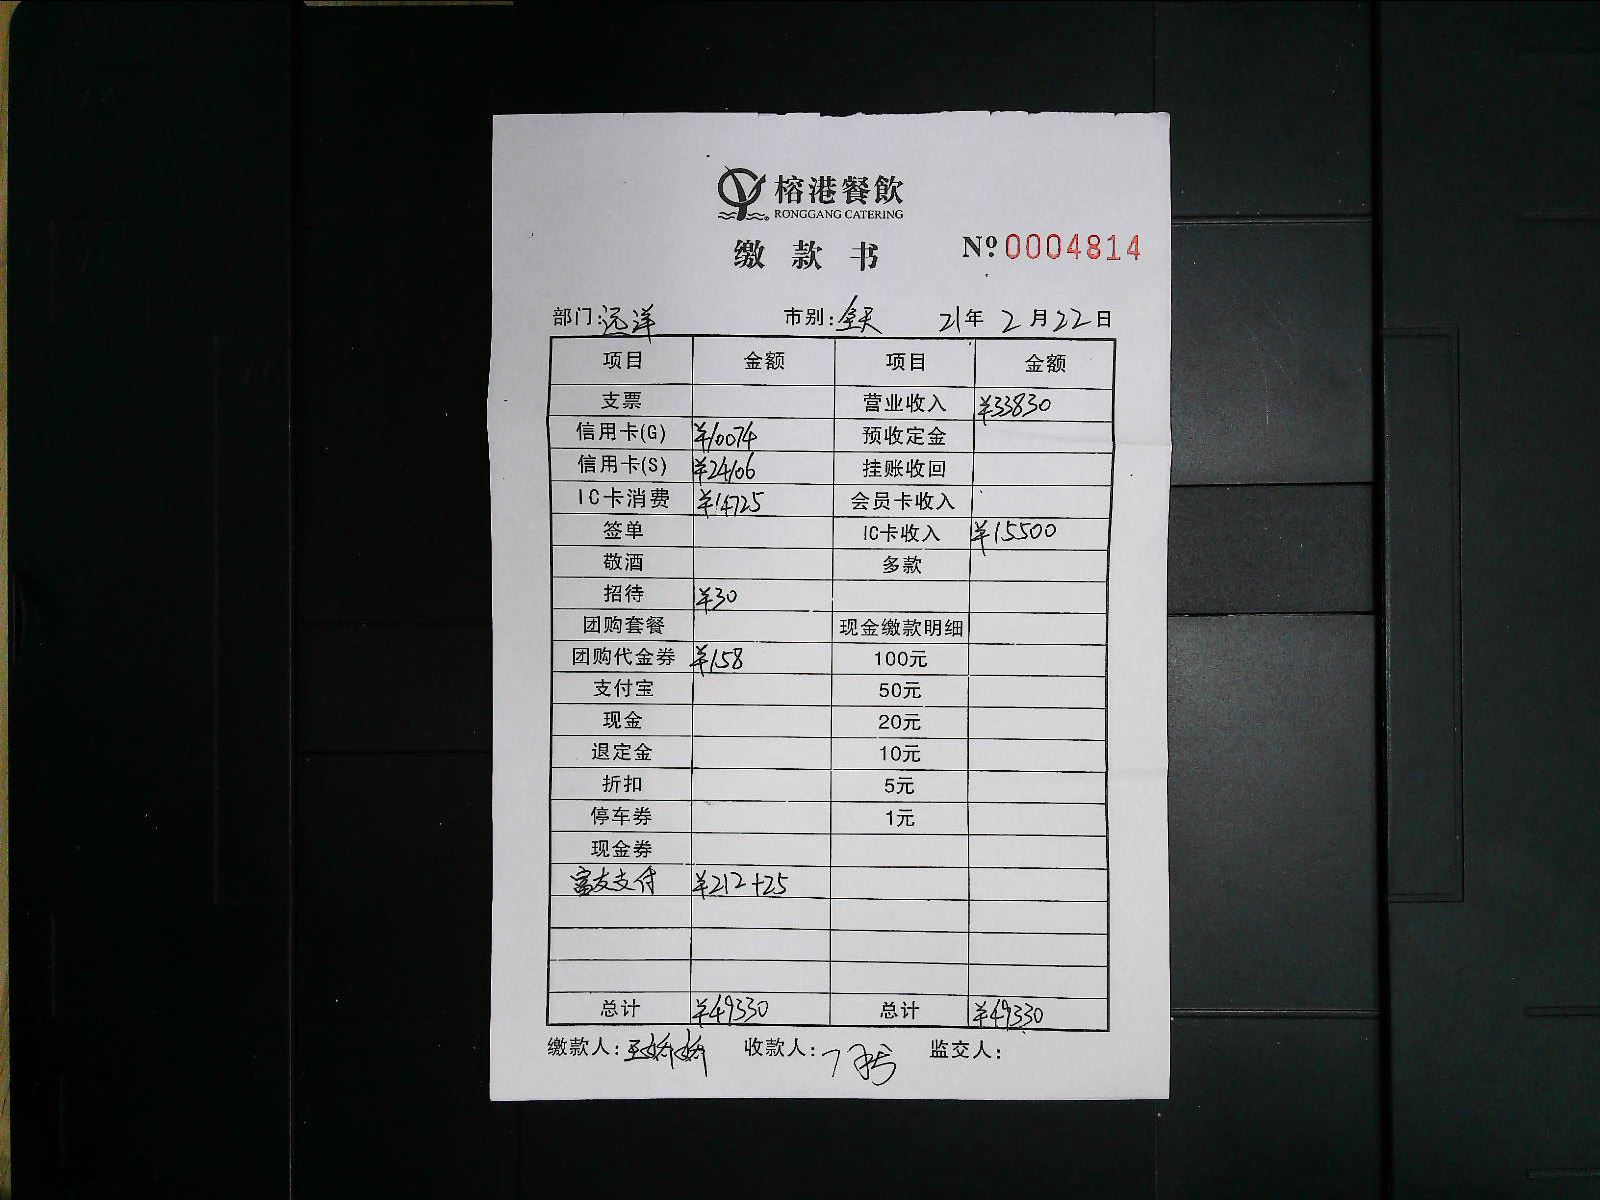 榕港餐飲
RONGGANG CATERING
缴款书 № 0004814
部门:远洋 市别:全天 21年2月22日
项目 金额 项目 金额
支票 营业收入 ¥33830
信用卡(G) ¥10074 预收定金
信用卡(S) ¥24106 挂账收回
IC卡消费 ¥14725 会员卡收入
签单 IC卡收入 ¥15500
敬酒 多款
招待 ¥30
团购套餐 现金缴款明细
团购代金券 ¥158 100元
支付宝 50元
现金 20元
退定金 10元
折扣 5元
停车券 1元
现金券
富友支付 ¥212+25
总计 ¥49330 总计 ¥49330
缴款人:王娇娇 收款人: 监交人: